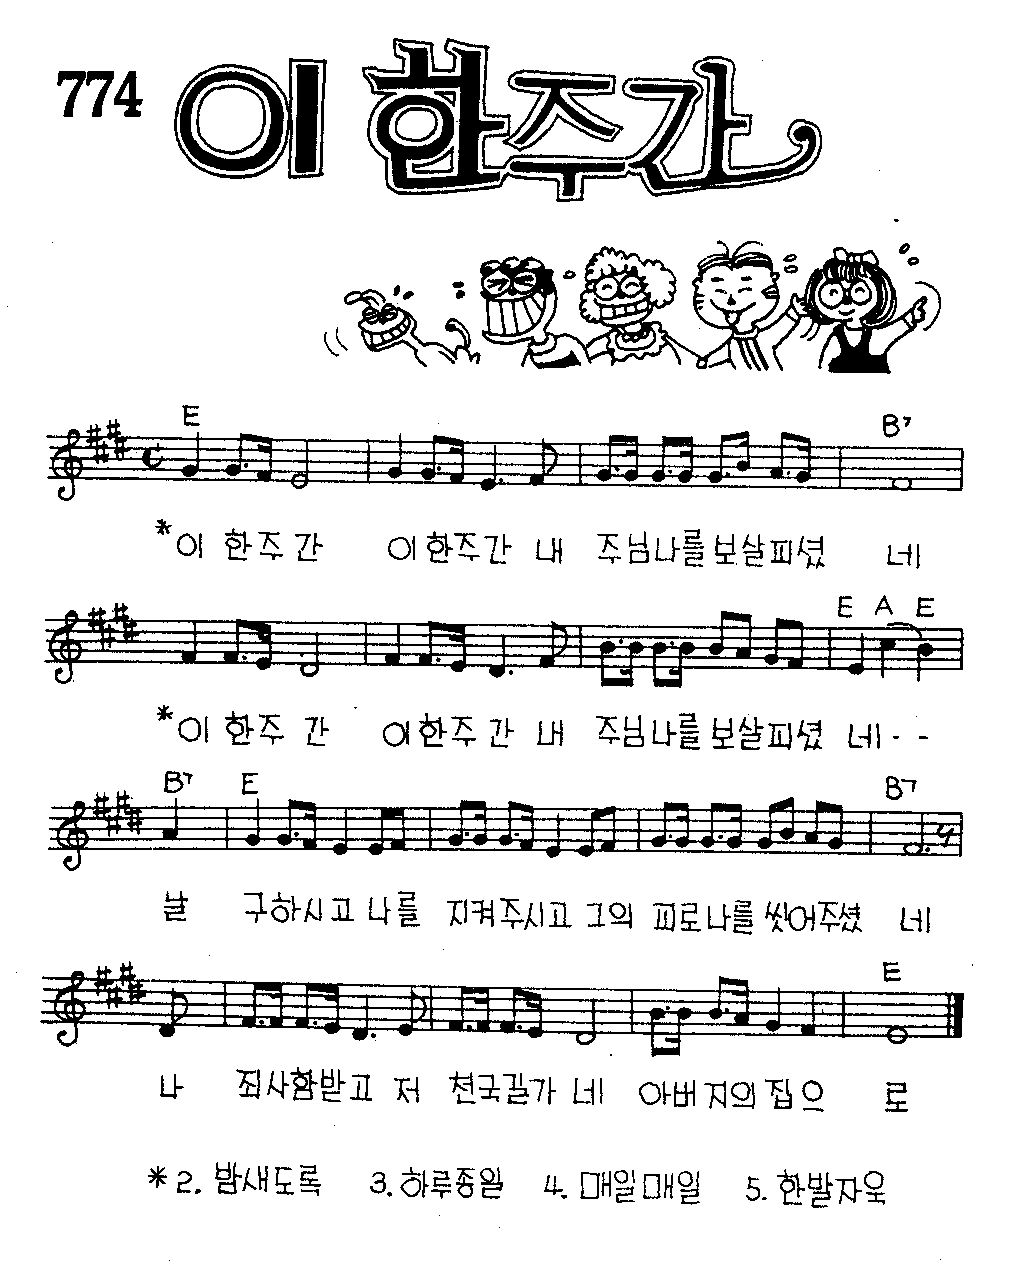 774 이 한주간
E B7
*이 한주간 이한주간 내 주님나를보살피셨 네
E A E
*이 한주 간 이한주 간 내 주님나를보살피셨 네 - -
B7 E B7
날 구하시고 나를 지켜주시고 그의 피로나를씻어주셨 네
E
나 죄사함받고 저 천국길가 네 아버지의 집으 로
*2. 밤새도록 3. 하루종일 4. 매일매일 5. 한발자욱